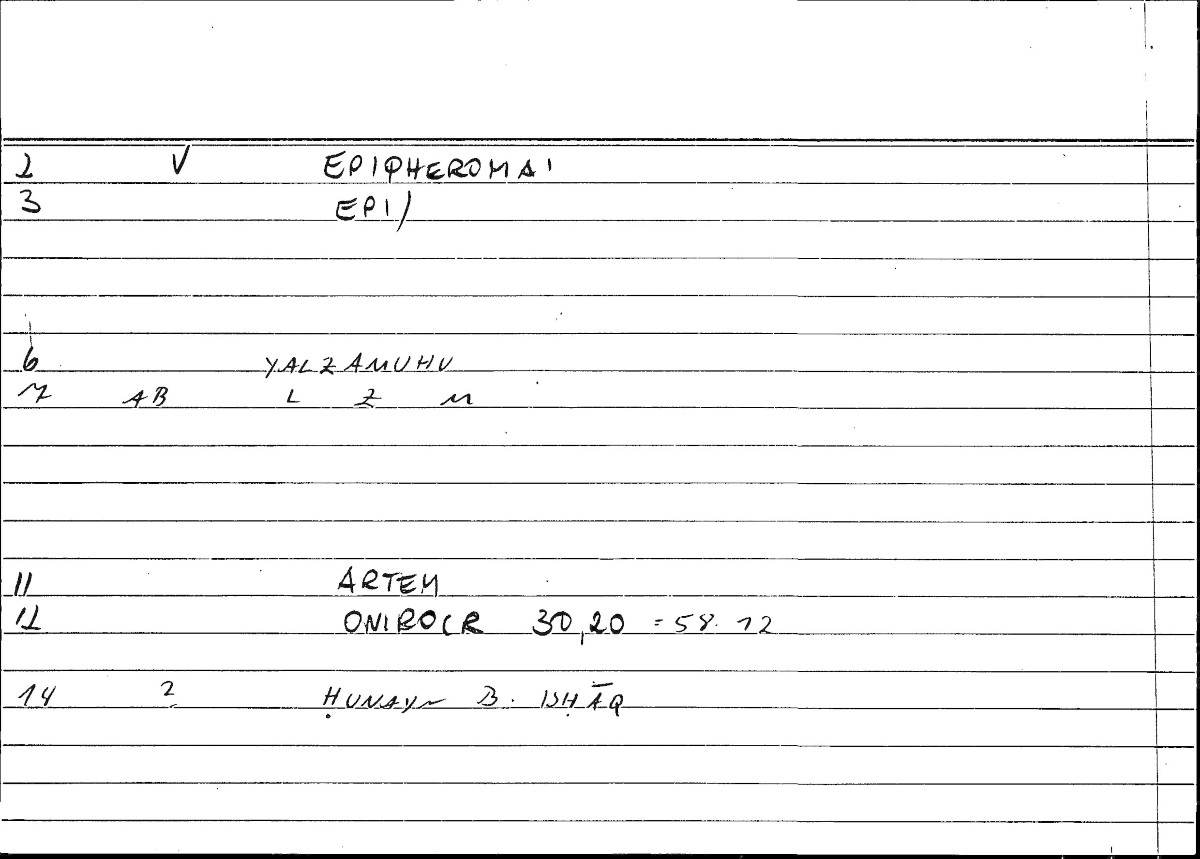 2 V EPIPHEROMAI
3 EPI/
6 YALZAMUHU
7 AB L Z M
11 ARTEM
12 ONIROCR 30,20 = 58.12
14 2 ḤUNAYN B. ISḤĀQ